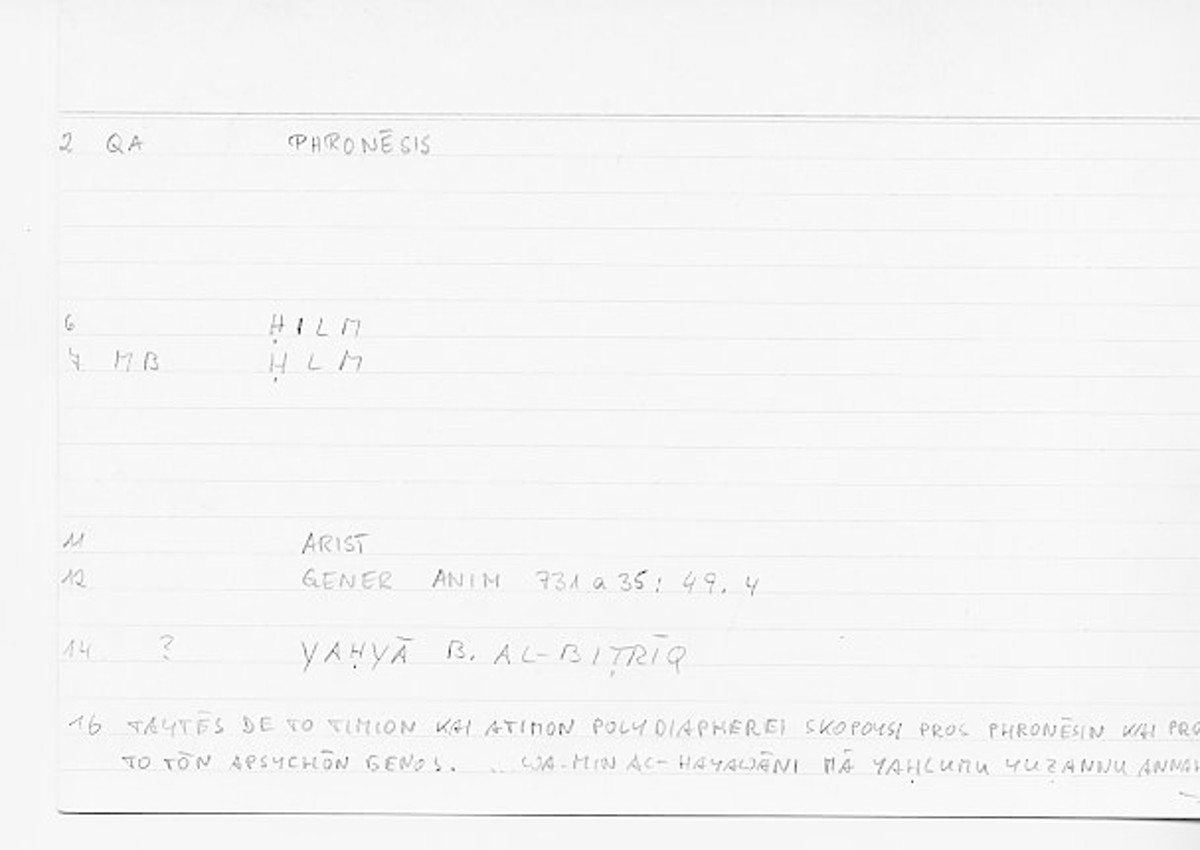 2 QA PHRONĒSIS
6 ḤILM
7 MB ḤLM
11 ARIST
12 GENER ANIM 731 a 35: 49.4
14 ? YAḤYĀ B. AL-BIṬRĪQ
16 TAYTĒS DE TO TIMION KAI ATIMON POLY DIAPHEREI SKOPOYSI PROS PHRONĒSIN KAI PRO
TO TŌN APSYCHŌN GENOS. .. WA-MIN AL-HAYAWĀNI MĀ YAḤLUMU YUẒANNU ANNAH